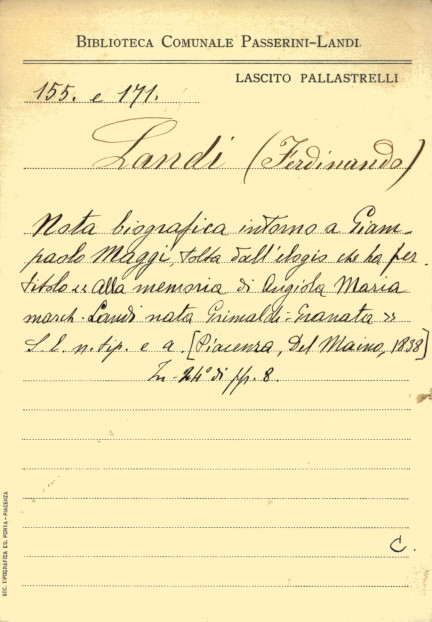 BIBLIOTECA COMUNALE PASSERINI-LANDI
LASCITO PALLASTRELLI
155. e 171.
Landi (Ferdinando)
Nota biografica intorno a Giam-
paolo Maggi, tolta dall'elogio che ha per
titolo « Alla memoria di Angiola Maria
march. Landi nata Grimaldi-Granata »
S. l. n. tip. e a. [Piacenza, Del Maino, 1838]
In-24° di pp. 8.
C.
SOC. TIPOGRAFICA ED. PORTA - PIACENZA